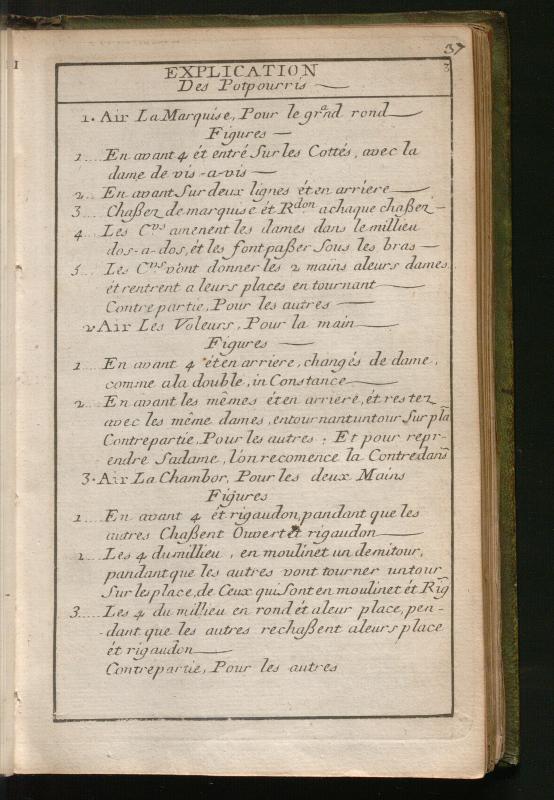 37
3
EXPLICATION
Des Potpourris
1. Air La Marquise, Pour le grand rond
Figures
1 En avant 4 ét entré Sur les Cottés, avec la
dame de vis-a-vis
2 En avant Sur deux lignes ét en arriere
3 Chaßez de marquise ét Rdon a chaque chaßez
4 Les Cvs amenent les dames dans le milieu
dos-a-dos, ét les font paßer Sous les bras
5 Les Cvs vont donner les 2 mains a leurs dames
ét rentrent a leurs places en tournant
Contre partie, Pour les autres
2 Air Les Voleurs, Pour la main
Figures
1 En avant 4 ét en arriere, changés de dame,
comme a la double, in Constance
2 En avant les mêmes ét en arriere, ét restez
avec les même dames, en tournant un tour Sur pla
Contrepartie, Pour les autres; Et pour repr-
endre Sa dame, l'on recomence la Contredans
3. Air La Chambor, Pour les deux Mains
Figures
1 En avant 4 ét rigaudon, pandant que les
autres Chaßent Ouvert ét rigaudon
2 Les 4 du millieu, en moulinet un demi tour,
pandant que les autres vont tourner un tour
Sur les place, de Ceux qui Sont en moulinet ét Rig
3 Les 4 du millieu en rond ét a leur place, pen-
dant que les autres rechaßent a leurs place
ét rigaudon
Contrepartie, Pour les autres